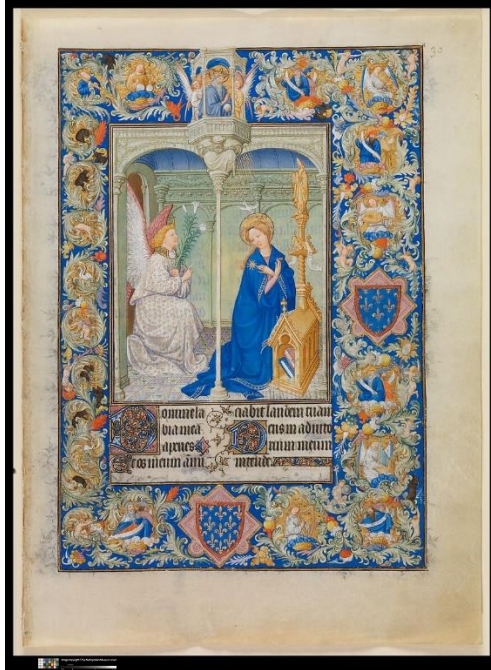 30
Domine la
bia mea
aperies
Et os meum
ciabit laudem tuam
Deus in adiuto
rium meum
intende